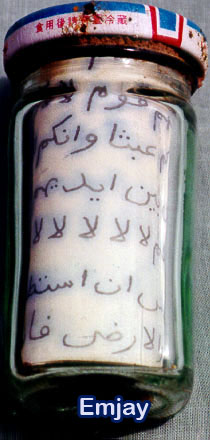 食用後請 冷藏
قوم لا
عبثا وانكم
ين ايديه
لا لا لا لا لا
ان استط
الارض فا
Emjay